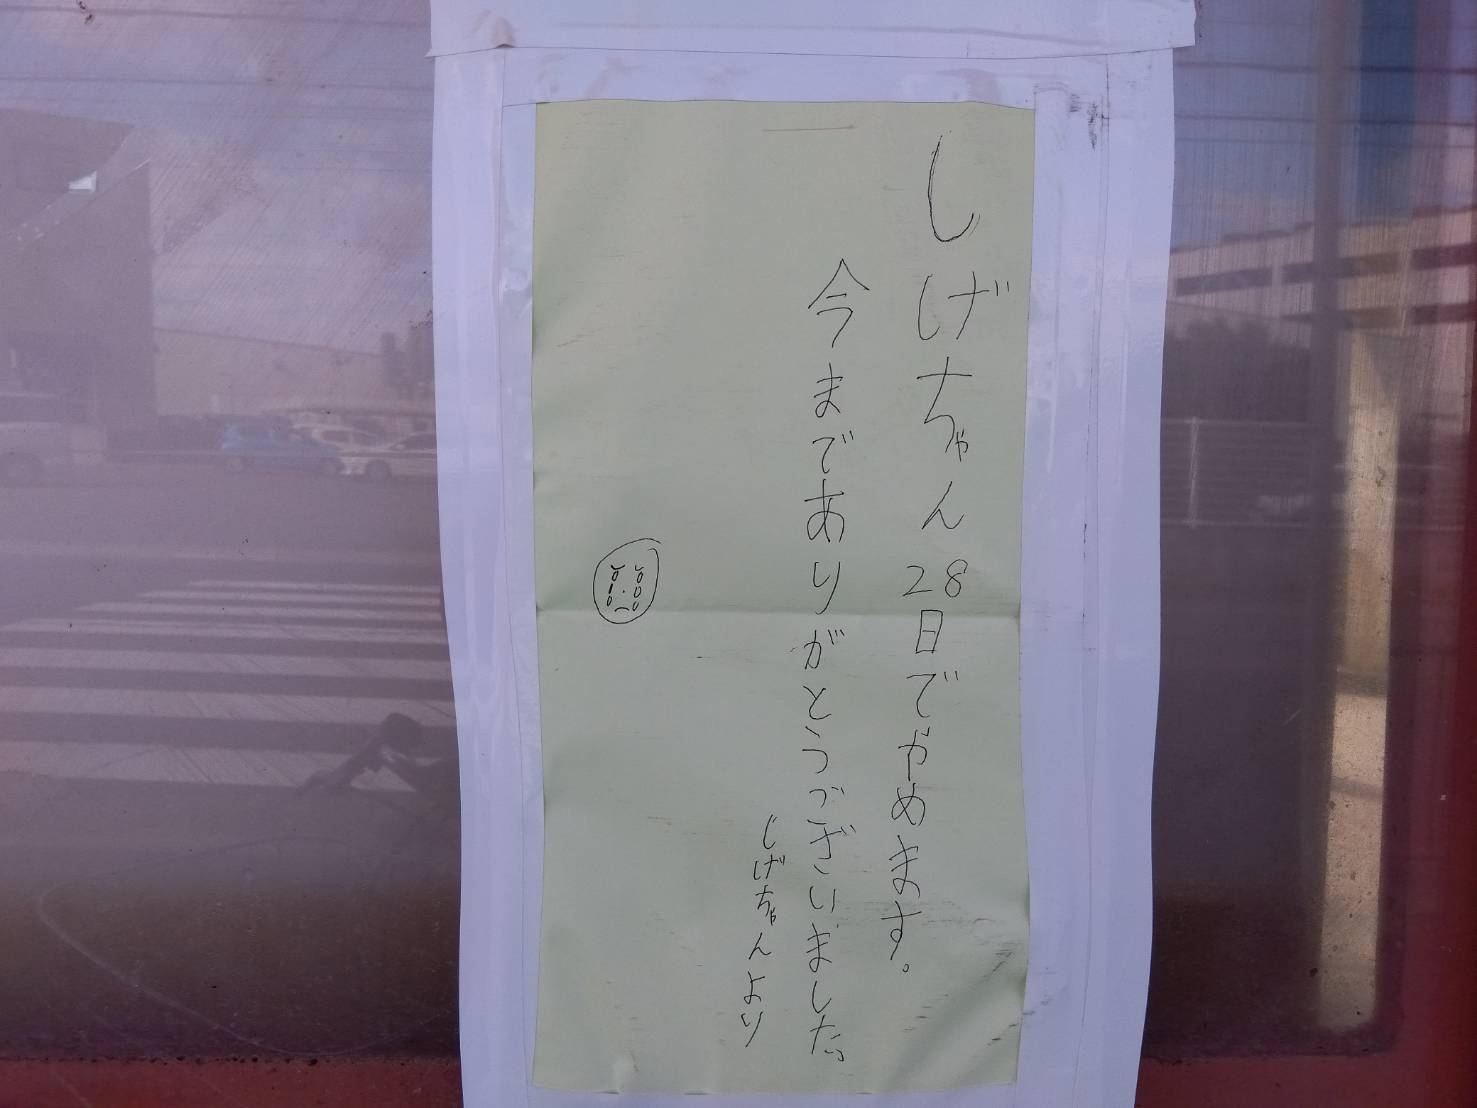 しげちゃん28日でやめます。
今までありがとうございました。
しげちゃんより